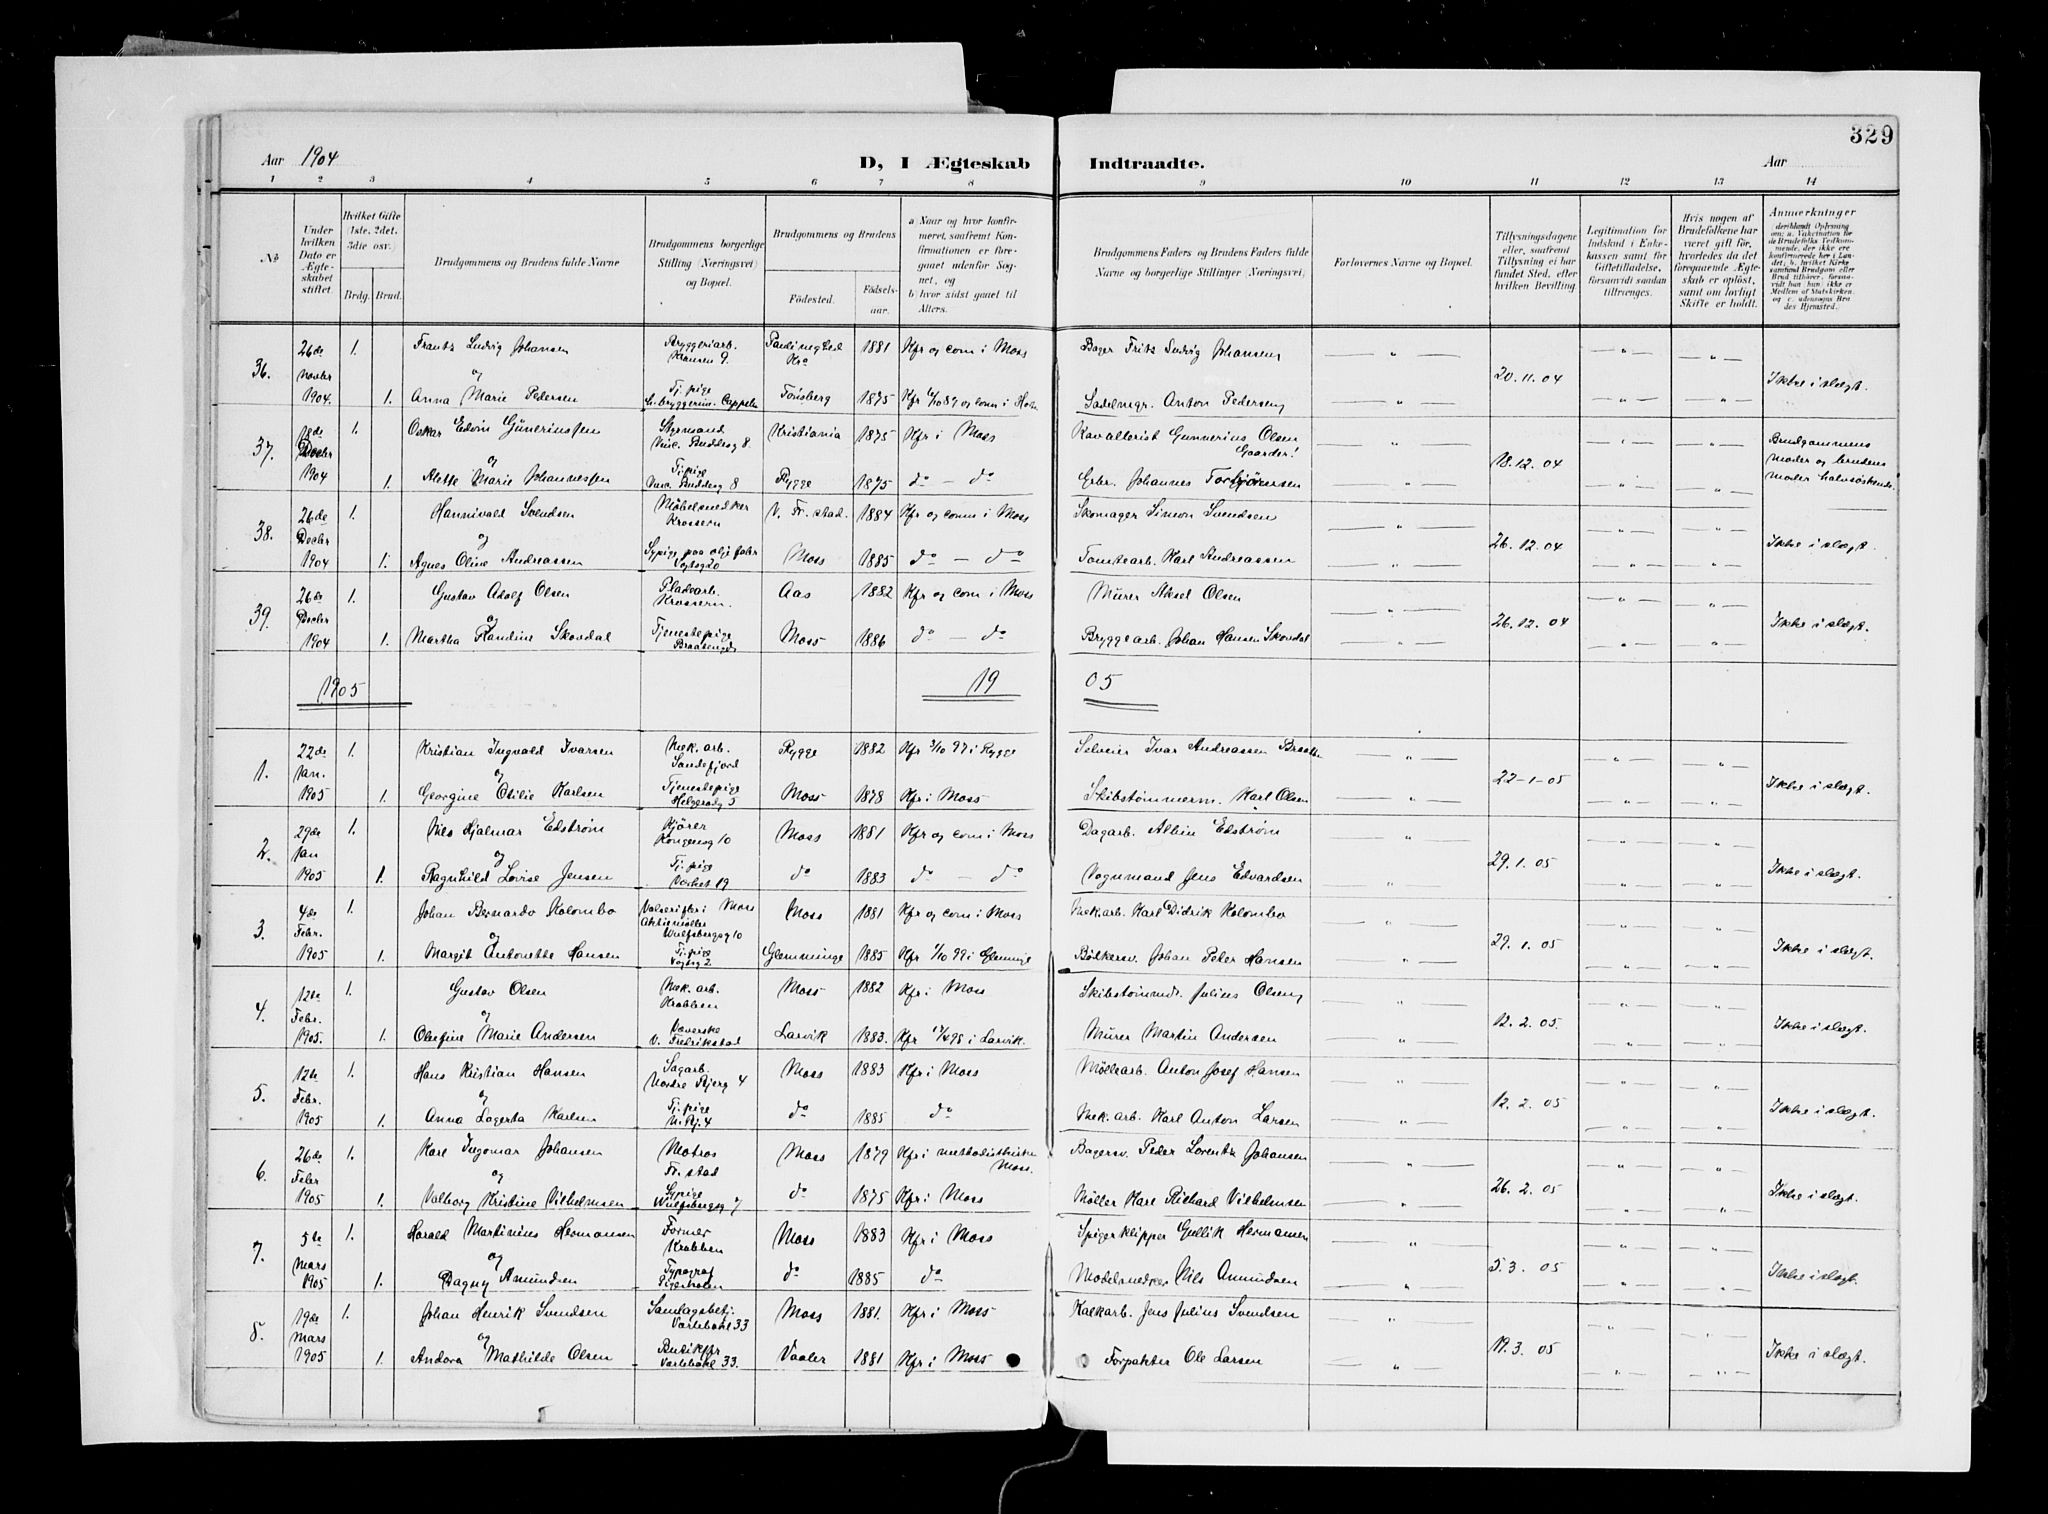 329
Aar 1904 D, I Ægteskab Indtraadte. Aar
1 2 3 4 5 6 7 8 9 10 11 12 13 14
No
Under hvilken Dato er Ægteskabet stiftet.
Hvilket Gifte (1ste, 2det, 3die osv.)
Brdg. Brud.
Brudgommens og Brudens fulde Navne
Brudgommens borgerlige Stilling (Næringsvei) og Bopæl.
Brudgommens og Brudens
Fødested. Fødselsaar.
a Naar og hvor konfirmeret, saafremt Konfirmationen er foregaaet udenfor Sognet, og
b) hvor sidst gaaet til Alters.
Brudgommens Faders og Brudens Faders fulde Navne og borgerlige Stillinger (Næringsvei.)
Forlovernes Navne og Bopæl.
Tillysningsdagene eller, saafremt Tillysning ei har fundet Sted, efter hvilken Bevilling.
Legitimation for Indskud i Enkekassen samt for Giftetilladelse, forsaavidt saadan tiltrænges.
Hvis nogen af Brudefolkene har været gift før, hvorledes da det foregaaende Ægteskab er opløst, samt om lovligt Skifte er holdt.
Anmerkninger
36. 26de Novber 1904. 1. Frantz Ludvig Johansen Bryggeriarb. Kransen 9 1881 Kfr og com i Moss Bager Fritz Ludvig Johansen — " — — " — — " —
og 20. 11. 04
1. Anna Marie Pedersen Tj. pige Tønsberg 1875 Sadelmgr. Anton Pedersen — " — — " — — " — Ikke i slægt.
37. 18de Decber 1904 1. Oskar Edvin Günerinssen Styrmand Vinc. Buddesg 8 Kristiania 1875 Kfr i Moss Kavallerist Gunnerius Olsen Gaarder! " — " — — " — Brudgommens
og 18. 12. 04 Moder og brudens
1. Alette Marie Johannessen Tj. pige Vinc. Buddesg 8 Rygge 1875 do — do Grbr. Johannes Torbjørnsen " — " — — " — Moder halvsøskende.
38. 26de Decber 1904 1. Hannivald Svendsen Møbelsnedker Krossern V. Fr. stad. 1884 Kfr og comm i Moss Skomager Simon Svendsen — " — — " — — " —
og 26. 12. 04
1. Agnes Oline Andreassen Sypige paa oljefabr Vogtsg 20 Moss 1885 do — do Tomtearb. Karl Andreassen — " — — " — — " — Ikke i slægt.
39. 26de Decber 1904 1. Gustav Adolf Olsen Pladearb. Krossern. Aas 1882 Kfr og com i Moss Murer Aksel Olsen — " — — " — — " —
og 26. 12. 04
1. Martha Randine Skovdal Tjenestepige Moss 1886 do — do Bryggearb. Johan Hansen Skovdal — " — — " — — " — Ikke i slægt.
1905 19 05
1. 22de Jan. 1905 1. Kristian Ingvald Ivarsen Mek. arb. Sandefjord Rygge 1882 Kfr 3/10 97 i Rygge Selveier Ivar Andreassen — " — — " — — " —
og 22-1-05
1. Georgine Otilie Karlsen Tjenestepige Helgerødg 5 Moss 1878 Kfr i Moss Skibstømmerm. Karl Olsen — " — — " — — " — Ikke i slægt.
2. 29de Jan 1905 1. Nils Hjalmar Edstrøm Kjører Kongensg 10 Moss 1881 Kfr og com i Moss Dagarb. Albin Edstrøm — " — — " — — " —
og 29. 1. 05
1. Ragnhild Lovise Jensen Tj. pige Værket 19 do 1883 do — do Vognmand Jens Edvardsen — " — — " — — " — Ikke i slægt.
3. 4de Febr. 1905 1. Johan Bernardo Kolombo Valserifler i Moss Aktiemøller Wulfsbergsg 10 Moss 1881 Kfr og com i Moss Mek. arb. Karl Didrik Kolombo — " — — " — — " —
og 29. 1. 05
1. Margit Antonette Hansen Tj. pige Vogtsg 2 Glemminge 1885 Kfr 1/10 99 i Glemmige Bødkersv. Johan Peter Hansen — " — — " — — " — Ikke i slægt.
4. 12te Febr. 1905. 1. Gustav Olsen Mek. arb. Krabben Moss 1882 Kfr i Moss Skibstømmdr. Julius Olsen — " — — " — — " —
og 12. 2. 05.
1. Olufine Marie Andersen Væverske V. Fredrikstad Larvik 1883. Kfr i Larvik. Murer Martin Andersen — " — — " — — " — Ikke i slægt.
5. 12te Febr. 1905 1. Hans Kristian Hansen Sagarb. Nordre Bjerg 4 Moss 1883 Kfr i Moss Møllearb. Anton Josef Hansen — " — — " — — " —
og 12. 2. 05
1. Anna Lagerta Karlsen Tj. pige N. Bj. 4 do 1885 do Mek. arb. Karl Anton Larsen — " — — " — — " — Ikke i slægt.
6. 26de Febr 1905 1. Karl Ingomar Johansen Matros Fr. stad Moss 1879 Kfr i methodistkirken Moss. Bagersv. Peder Lorentz Johansen — " — — " — — " —
og 26. 2. 05
1. Valborg Kristine Vilhelmsen Sypige Wulfsbergsg 7 do 1875 Kfr i Moss Møller Karl Richard Vilhelmsen — " — — " — — " — Ikke i slægt.
7. 5te Mars 1905 1. Harald Martinius Hermansen Former Krabben Moss 1883 Kfr i Moss Spigerklipper Gullik Hermansen — " — — " — — " —
og 5. 3. 05
1. Dagny Amundsen Typograf 1885 do Møbelsnedker Nils Amundsen — " — — " — — " — Ikke i slægt.
8. 19de Mars 1905 1. Johan Henrik Svendsen Varlebakl 33 Moss 1881. Kfr i Moss Kalkarb. Jens Julius Svendsen — " — — " — — " —
og 19. 3. 05
1. Andora Mathilde Olsen Butikkfr Varlebakl 33. Vaaler 1881 Kfr i Moss Forpakter Ole Larsen — " — — " — — " — Ikke i slægt.